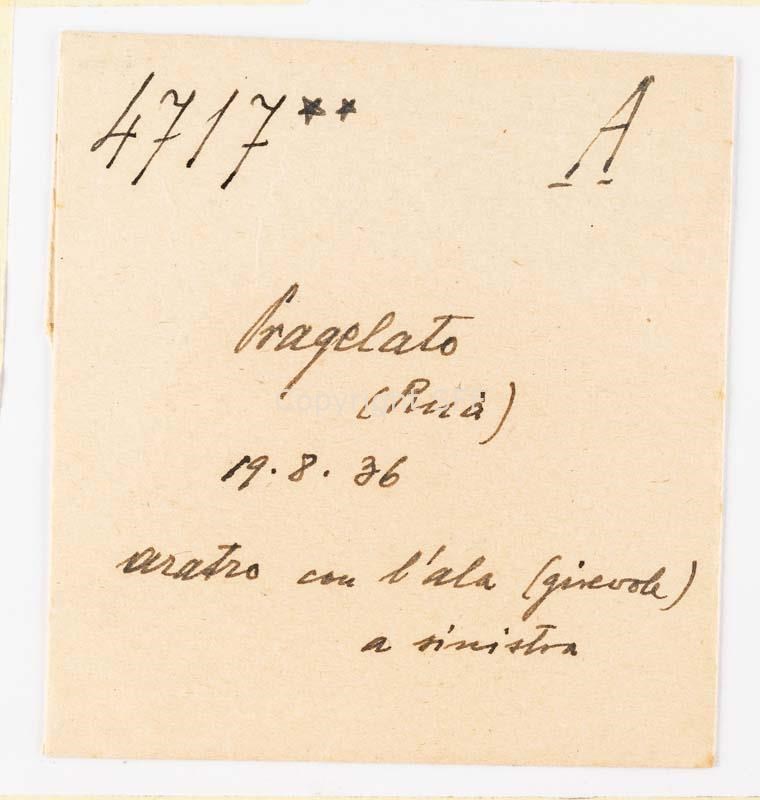 4717** A
Pragelato
(Ruà)
19.8.36
aratro con l'ala (girevole)
a sinistra